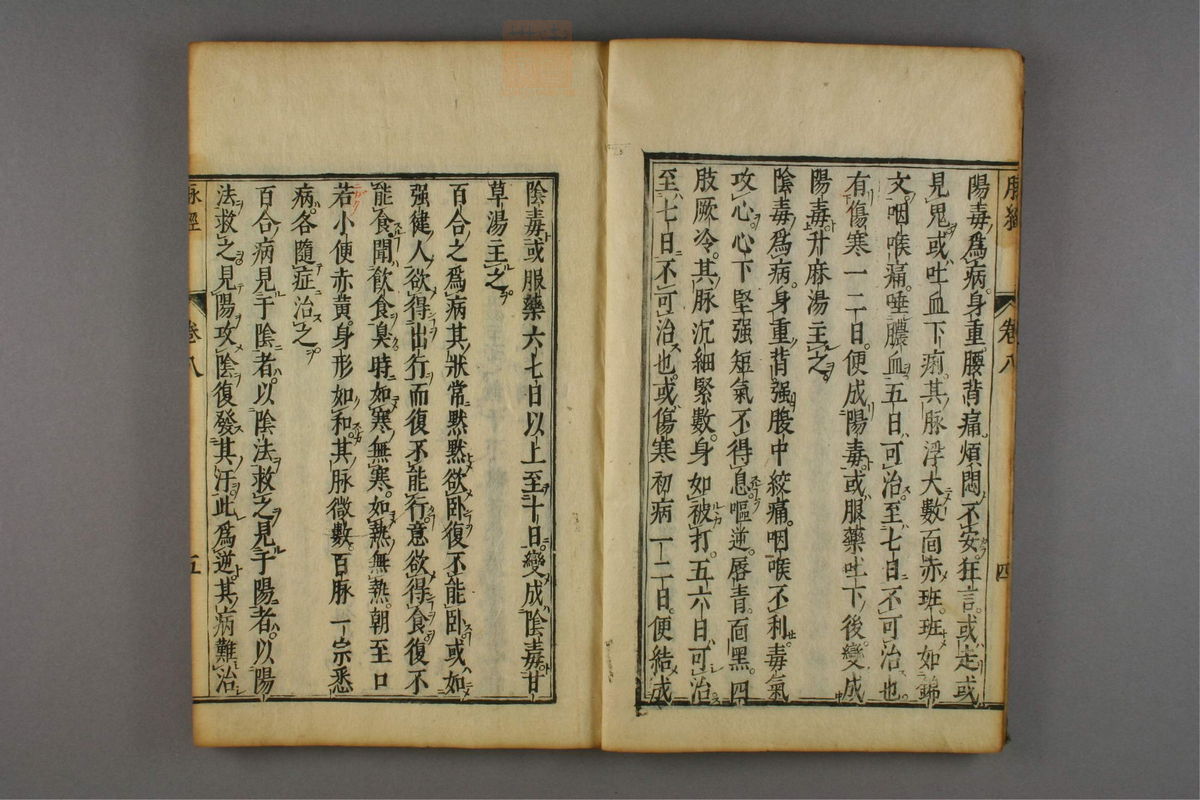 脉經
卷八
四
陽毒爲病身重腰背痛煩悶不安狂言或走或
見鬼或吐血下痢其脉浮大數面赤斑斑如錦
文咽喉痛唾膿血五日可治至七日不可治也
有傷寒一二日便成陽毒或服藥吐下後變成
陽毒升麻湯主之
陰毒爲病身重背强腹中絞痛咽喉不利毒氣
攻心心下堅强短氣不得息嘔逆唇青面黑四
肢厥冷其脉沉細緊數身如被打五六日可治
至七日不可治也或傷寒初病一二日便結成
陰毒或服藥六七日以上至十日變成陰毒甘
草湯主之
百合之爲病其狀常默默欲臥復不能臥或如
强健人欲得出行而復不能行意欲得食復不
能食聞飲食臭時如寒無寒如熱無熱朝至口
若小便赤黄身形如和其脉微數百脉一宗悉
病各隨症治之
百合病見于陰者以陰法救之見于陽者以陽
法救之見陽攻陰復發其汗此爲逆其病難治
脉經
卷八
五